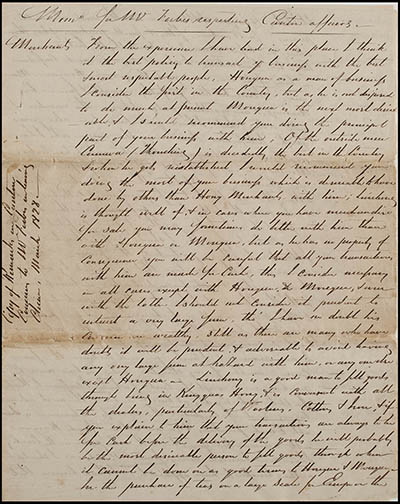 Memo for Mr Forbes respecting Canton affairs.
Merchants From the experience I have had in this place I think
it the best policy to transact business with the best
most respectable people, Houqua as a man of business
I consider the first in the Country, but as he is not disposed
to do much at present Mouqua is the most desir-
able, & I should recommend you doing the principal
part of your business with him, Of the outside men
Conseequa () is decidedly the best in the Country
& when he gets reestablished I would recommend your
doing the most of your business which is desirable to have
done by others than Hong Merchants, with him, Linchong
is thought well of, & in cases when you have merchandise
for sale you may sometimes do better with him than
with Houqua or Mouqua, but as he has no property of
Consequence you will be careful that all your transactions
with him are made for Cash, this I consider necessary
in all cases except with Houqua & Mouqua, & even
with the latter I should not consider it prudent to
intrust a very large sum, tho' I have no doubt his
is wealthy. Still as there are many who have
doubts it will be prudent & advisable to avoid having
any very large sum at hazard with him, or any one else
except Houqua — Linchong is a good man to sell goods
through being in Kingqua's Hong, & is connected with all
the dealers, particularly of Woolens, Cottons, & Iron, & if
you explain to him that your transactions are always to be
for Cash before the delivery of the goods he will probably
be the most desirable person to sell goods through when
it cannot be done on as good terms to Houqua & Mouqua —
In the purchase of teas on a large scale for Europe or the
Copy of Remarks on Canton
Business to Mr Forbes on leaving
China, March 1828 —